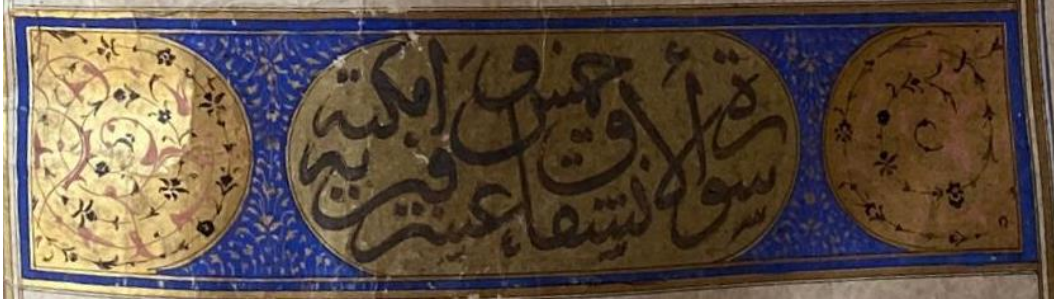 سورة الانشقاق خمس وعشرين اية مكية